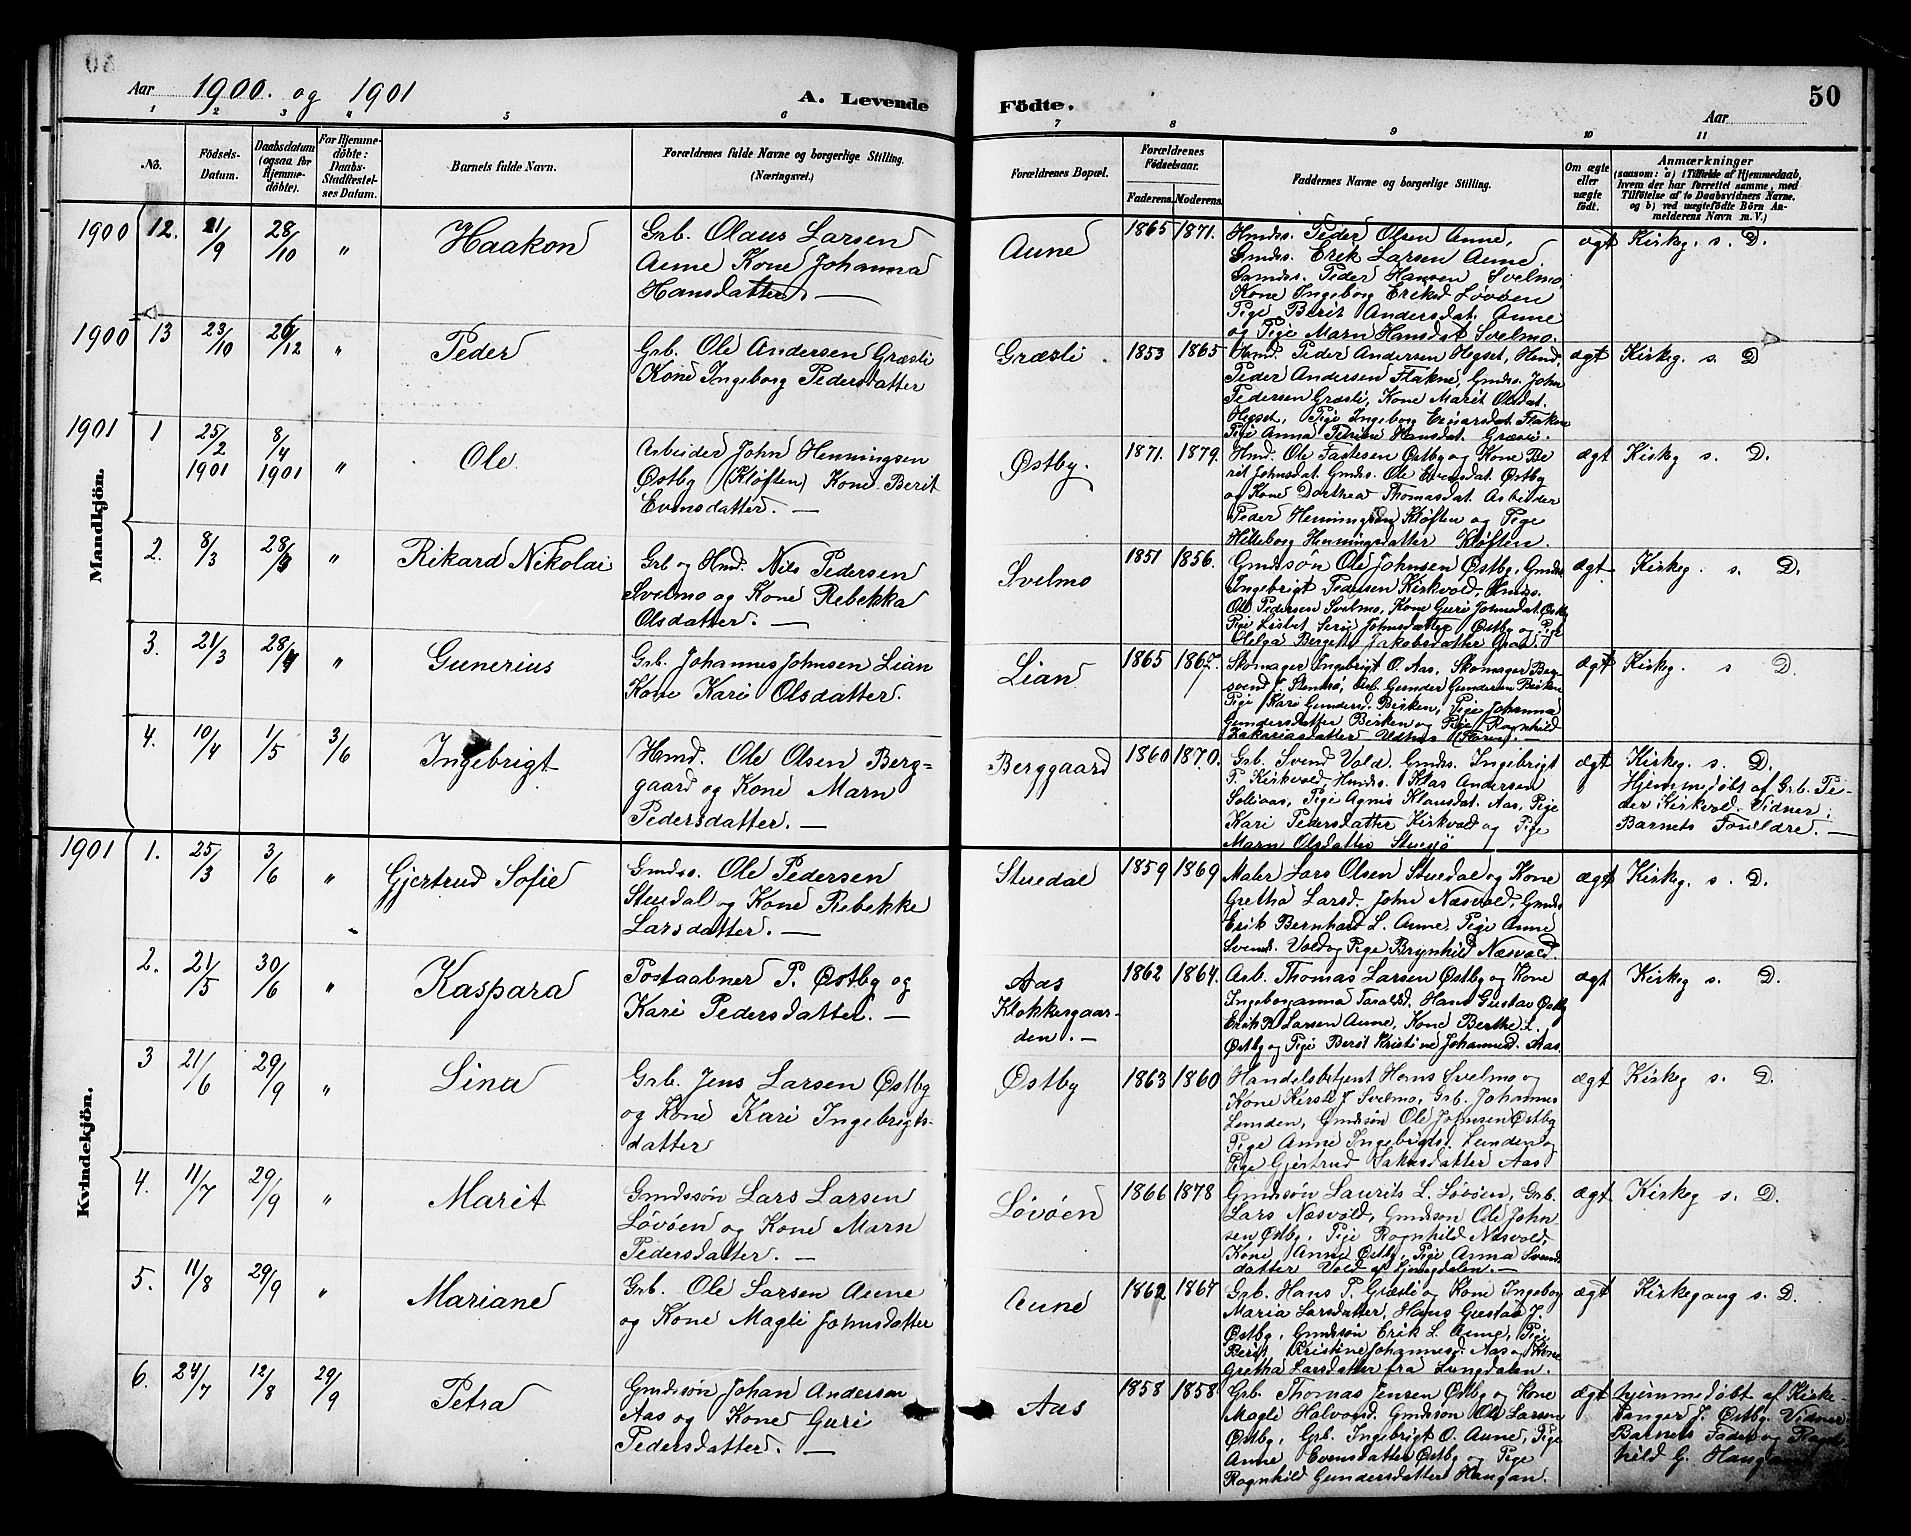 50
Aar 1900. og 1901
A. Levende
Födte.
Aar
50
1 2 3 4 5 6 7 8 9 10 11
No.
Födsels-Datum.
Daabsdatum (ogsaa for Hjemmedöbte).
For Hjemmedöbte: Daabs-Stadfæstelses Datum.
Barnets fulde Navn.
Forældrenes fulde Navne og borgerlige Stilling. (Næringsvei.)
Forældrenes Bopæl.
Forældrenes Födselsaar.
Faderens. Moderens.
Faddernes Navne og borgerlige Stilling.
Om ægte eller uægte födt.
Anmærkninger
(saasom: a) i Tilfælde af Hjemmedaab,
hvem der har forrettet samme, med
Tilföielse af to Daabsvidners Navne,
og b) ved uægtefödte Börn Anmelderens Navn m. V.)
Mandkjön.
1900 12. 21/9 28/10 " Haakon
Grb. Olaus Larsen
Aune Kone Johanna
Hansdatter. —
Aune 1865 1871.
Hmds. Peder Olsen Aune,
Gmds. Erik Larsen Aune.
Gmds. Peder Hansen Svelmo,
Kone Ingeborg Eriksd Løvøen
Pige Berit Andersdat. Aune
og Pige Marn Hansdat Svelmo.
ægt Kirkeg. s. D.
1900 13 23/10 26/12 " Peder
Grb. Ole Andersen Græsli
Kone Ingeborg Pedersdatter
Græsli. 1853 1865
Hmd. Peder Andersen Hegset, Hmd.
Peder Andersen Flakne, Gmds. John
Pedersen Græsli, Kone Marit Olsdat.
Hegset, Pige Ingeborg Einarsdat. Flaken
Pige Anna Petrine Hansdat. Græsli.
ægt Kirkeg. s. D
1901 1 25/2 1901 8/4 1901 " Ole
Arbeider John Henningsen
Østby (Kløften) Kone Berit
Evensdatter. —
Østby. 1871. 1879.
Hmd. Ole Fastesen Østby og Kone Be
rit Johnsdat. Gmds. Ole Evensdat. Østby
og Kone Dorthea Thomasdat. Arbeider
Peder Henningsen Kløften og Pige
Hildeborg Henningsdatter Kløften.
ægt Kirkeg s. D.
2. 8/3 28/3 " Rikard Nikolai
Grb og Hmd. Nils Pedersen
Svelmo og Kone Rebekka
Olsdatter. —
Svelmo 1851 1856.
Gmdssøn Ole Johnsen Østby, Gmds.
Ingebrigt Pedersen Kirkvold, Gmds.
Ole Pedersen Svelmo, Kone Guri Johnsdat. Østby
Pige Lisbet Serie Johnsdatter Østby og Pige
Olelga Berget Jakobsdatter
ægt. Kirkeg. s. D.
3. 21/3 28/4 " Gunerius
Grb. Johannes Johnsen Lian
Kone Kari Olsdatter.
Lian 1865 1867.
Skomager Ingebrigt O. Aas, Skomager Berg-
svend J. Stenmo, Arb. Gunder Gundersen Birken
Pige Kari Gundersd. Birken, Pige Johanna
Gundersdatter Birken og Pige Ragnhild
Zakariasdatter
ægt Kirkeg. s D.
4. 10/4 1/5 3/6 Ingebrigt
Hmd. Ole Olsen Berg=
gaard og Kone Marn
Pedersdatter. —
Berggaard 1860 1870.
Grb. Svend Vold. Gmds. Ingebrigt
P. Kirkvold, Hmds. Klas Andersen
Soliaas, Pige Agnis Klausdat. Aas, Pige
Kari Pedersdatter Kirkvold og Pige
Marn Olsdatter Stuesjø
ægt Kirkeg. s. D.
Hjemmedøbt af Grb. Pe-
der Kirkvold. Vidner:
Barnets Forældre. —
Kvindekjön.
1901 1. 25/3 3/6 " Gjertrud Sofie
Gmds. Ole Pedersen
Stuedal og Kone Rebekke
Larsdatter. —
Stuedal 1859 1869
Maler Lars Olsen Stuedal og Kone
Gretha Larsd. John Næsvold, Gmds
Erik Bernhard L. Aune, Pige Anne
Svends. Vold og Pige Brynhild Næsvold.
ægt Kirkeg. s. D.
2. 21/5 30/6 " Kaspara
Postaabner P. Østby og
Kari Pedersdatter. —
Aas
Klokkergaar-
den. —
1862 1864.
Arb. Thomas Larsen Østby og Kone
Ingeboranna Taralsd. Hans Gustav Østby
Erik R Larsen Aune, Kone Berthe L.
Østby og Pige Berit Kristine Johannesd. Aas.
ægt Kirkeg s. D.
3 21/6 29/9 " Lina
Grb. Jens Larsen Østby
og Kone Kari Ingebrigts-
datter
Østby 1863 1860
Handelsbetjent Hans Svelmo og
Kone Kirsti J Svelmo, Grb. Johannes
Lunden, Gmdssøn Ole Johnsen Østby
Pige Anne Ingebrigtsd. Lunden og
Pige Gjertrud Jakobsdatter Aas
ægt Kirkeg s. D.
4. 11/7 29/9 " Marit
Gmdssøn Lars Larsen
Løvøen og Kone Marn
Pedersdatter. —
Løvøen 1866 1878
Gmdssøn Laurits L. Løvøen, Grb.
Lars Næsvold, Gmdssøn Ole John
sen Østby, Pige Ragnhild Næsvold,
Kone Anne Østby, Pige Anna Svend
datter Vold af Ljungdalen. —
ægt Kirkeg s. D.
5. 11/8 29/9 " Mariane
Grb. Ole Larsen Aune
og Kone Magli Johnsdatter
Aune 1862 1867
Grb. Hans P. Græsli og Kone Ingeborg
Maria Larsdatter, Hans Gustav J.
Østby, Gmdssøn Erik L. Aune, Pige
Berit Kristine Johannesd. Aas og Kone
Gretha Larsdatter fra Lungdalen.
ægt Kirkegang s. D.
6. 24/7 12/8 29/9 Petra
Gmdssøn Johan Andersen
Aas og Kone Guri
Pedersdatter. —
Aas 1858 1858
Grb. Thomas Jensen Østby og Kone
Magli Halvorsd. Gmdssøn Ole Larsen
Østby, Grb. Ingebrigt O. Aune, Pige
Anne Evensdatter Østby og Pige
Ragnhild Gundersdatter Haugan.
ægt hjemmedøbt af Kirke-
sanger J. Østby. Vidner
Barnets Fader og Ragn
hild G. Haugan